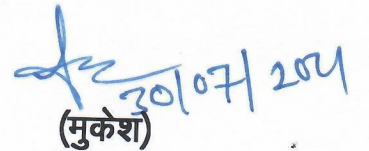 30/07/2024
(मुकेश)